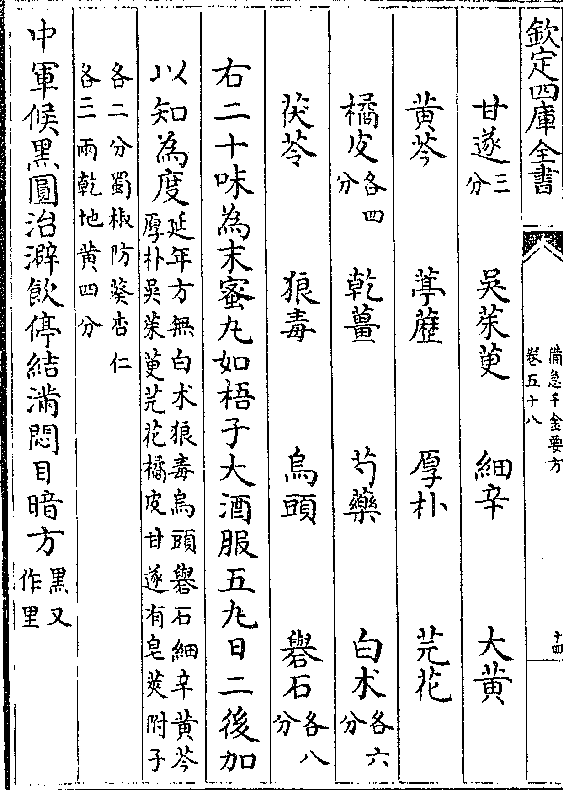 欽定四庫全書
備急千金要方
卷五十八
十四
甘遂三分　吳茱萸　細辛　大黃
黃芩　葶藶　厚朴　芫花
橘皮各四分　乾薑　芍藥　白术各六分
茯苓　狼毒　烏頭　礜石各八分
右二十味為末蜜丸如梧子大酒服五丸日二後加
以知為度延年方無白术狼毒烏頭礜石細辛黃芩
厚朴吳茱萸芫花橘皮甘遂有皂莢附子
各二分蜀椒防葵杏仁
各三兩乾地黃四分
中軍候黑圓治澼飲停結滿悶目暗方黑又作里